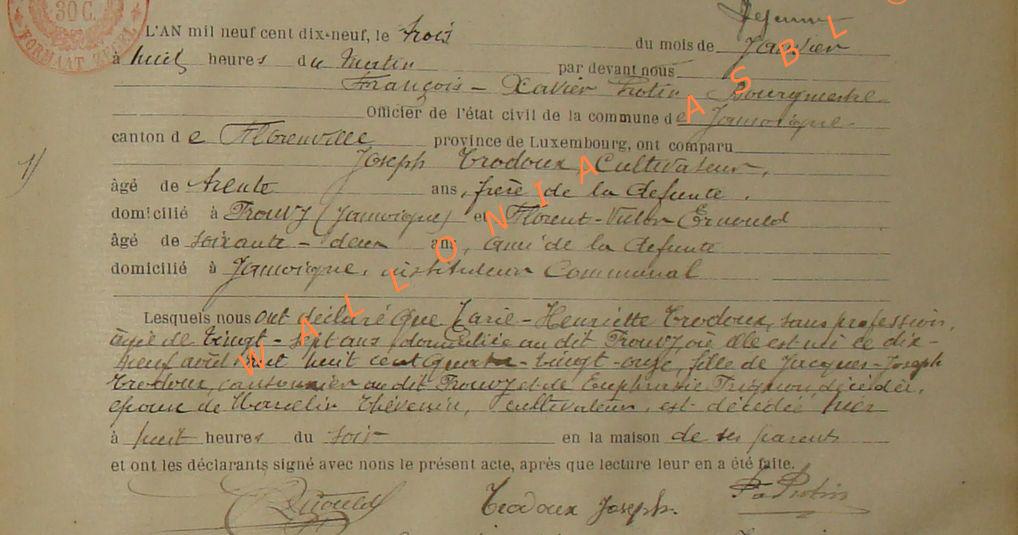 30 C.
FORMAAT ZEGEL
L'AN mil neuf cent dix-neuf, le trois
du mois de Janvier
à huit heures du Matin par devant nous
François - Xavier Protin Bourgmestre
Officier de l'état civil de la commune de Jamoigne
canton de Florenville province de Luxembourg, ont comparu
Joseph Trodoux, Cultivateur,
1)
âgé de trente ans, frère de la defunte.
domicilié à Prouvy (Jamoigne) et Florent-Victor Ernould
âgé de soixante-deux ans, ami de la defunte
domicilié à Jamoigne, instituteur Communal
Lesquels nous ont déclaré que Marie-Henriette Trodoux, sans profession,
âgée de Vingt-sept ans domiciliée au dit Prouvy où elle est née ce dix-
neuf août huit cent quatre-vingt-onze, fille de Jacques-Joseph
Trodoux, cantonnier au dit Prouvy et de Euphrasie décédée,
epouse de Marcelin Thévenin, cultivateur, est décédée hier
à huit heures du soir en la maison de ses parents
et ont les déclarants signé avec nous le présent acte, après que lecture leur en a été faite.
Ernould Trodoux Joseph. Protin
WALLONIA ASBL